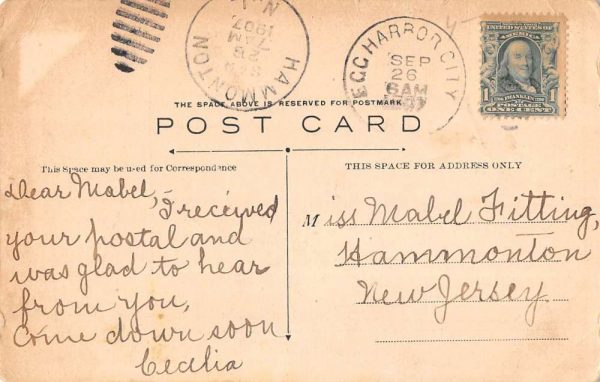 HAMMONTON
SEP
26
7 AM
1907
N.J.
EGG HARBOR CITY
SEP
26
6AM
1907
UNITED STATES OF AMERICA
1 FRANKLIN 1
POSTAGE
ONE CENT
THE SPACE ABOVE IS RESERVED FOR POSTMARK
POST CARD
This Space may be used for Correspondence
THIS SPACE FOR ADDRESS ONLY
Dear Mabel,
I received
your postal and
was glad to hear
from you,
Come down soon
Cecelia
Miss Mabel Fitting,
Hammonton
New Jersey